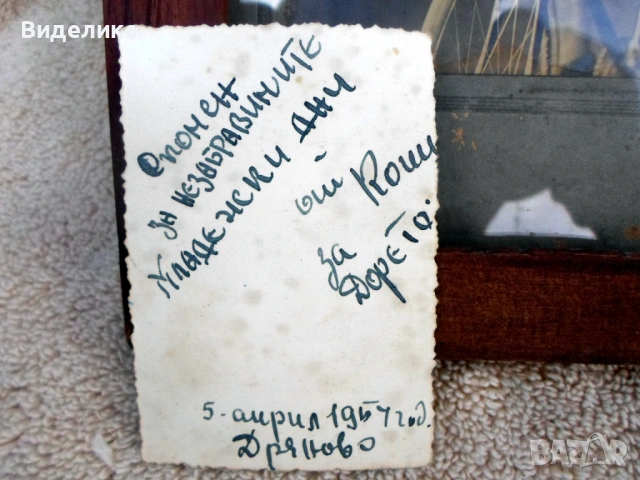 Виделик
Спомен
за незабравимите
младежки дни
от Коши
за
Дорето.
5-април 1957 год.
Дряново
BAZAR